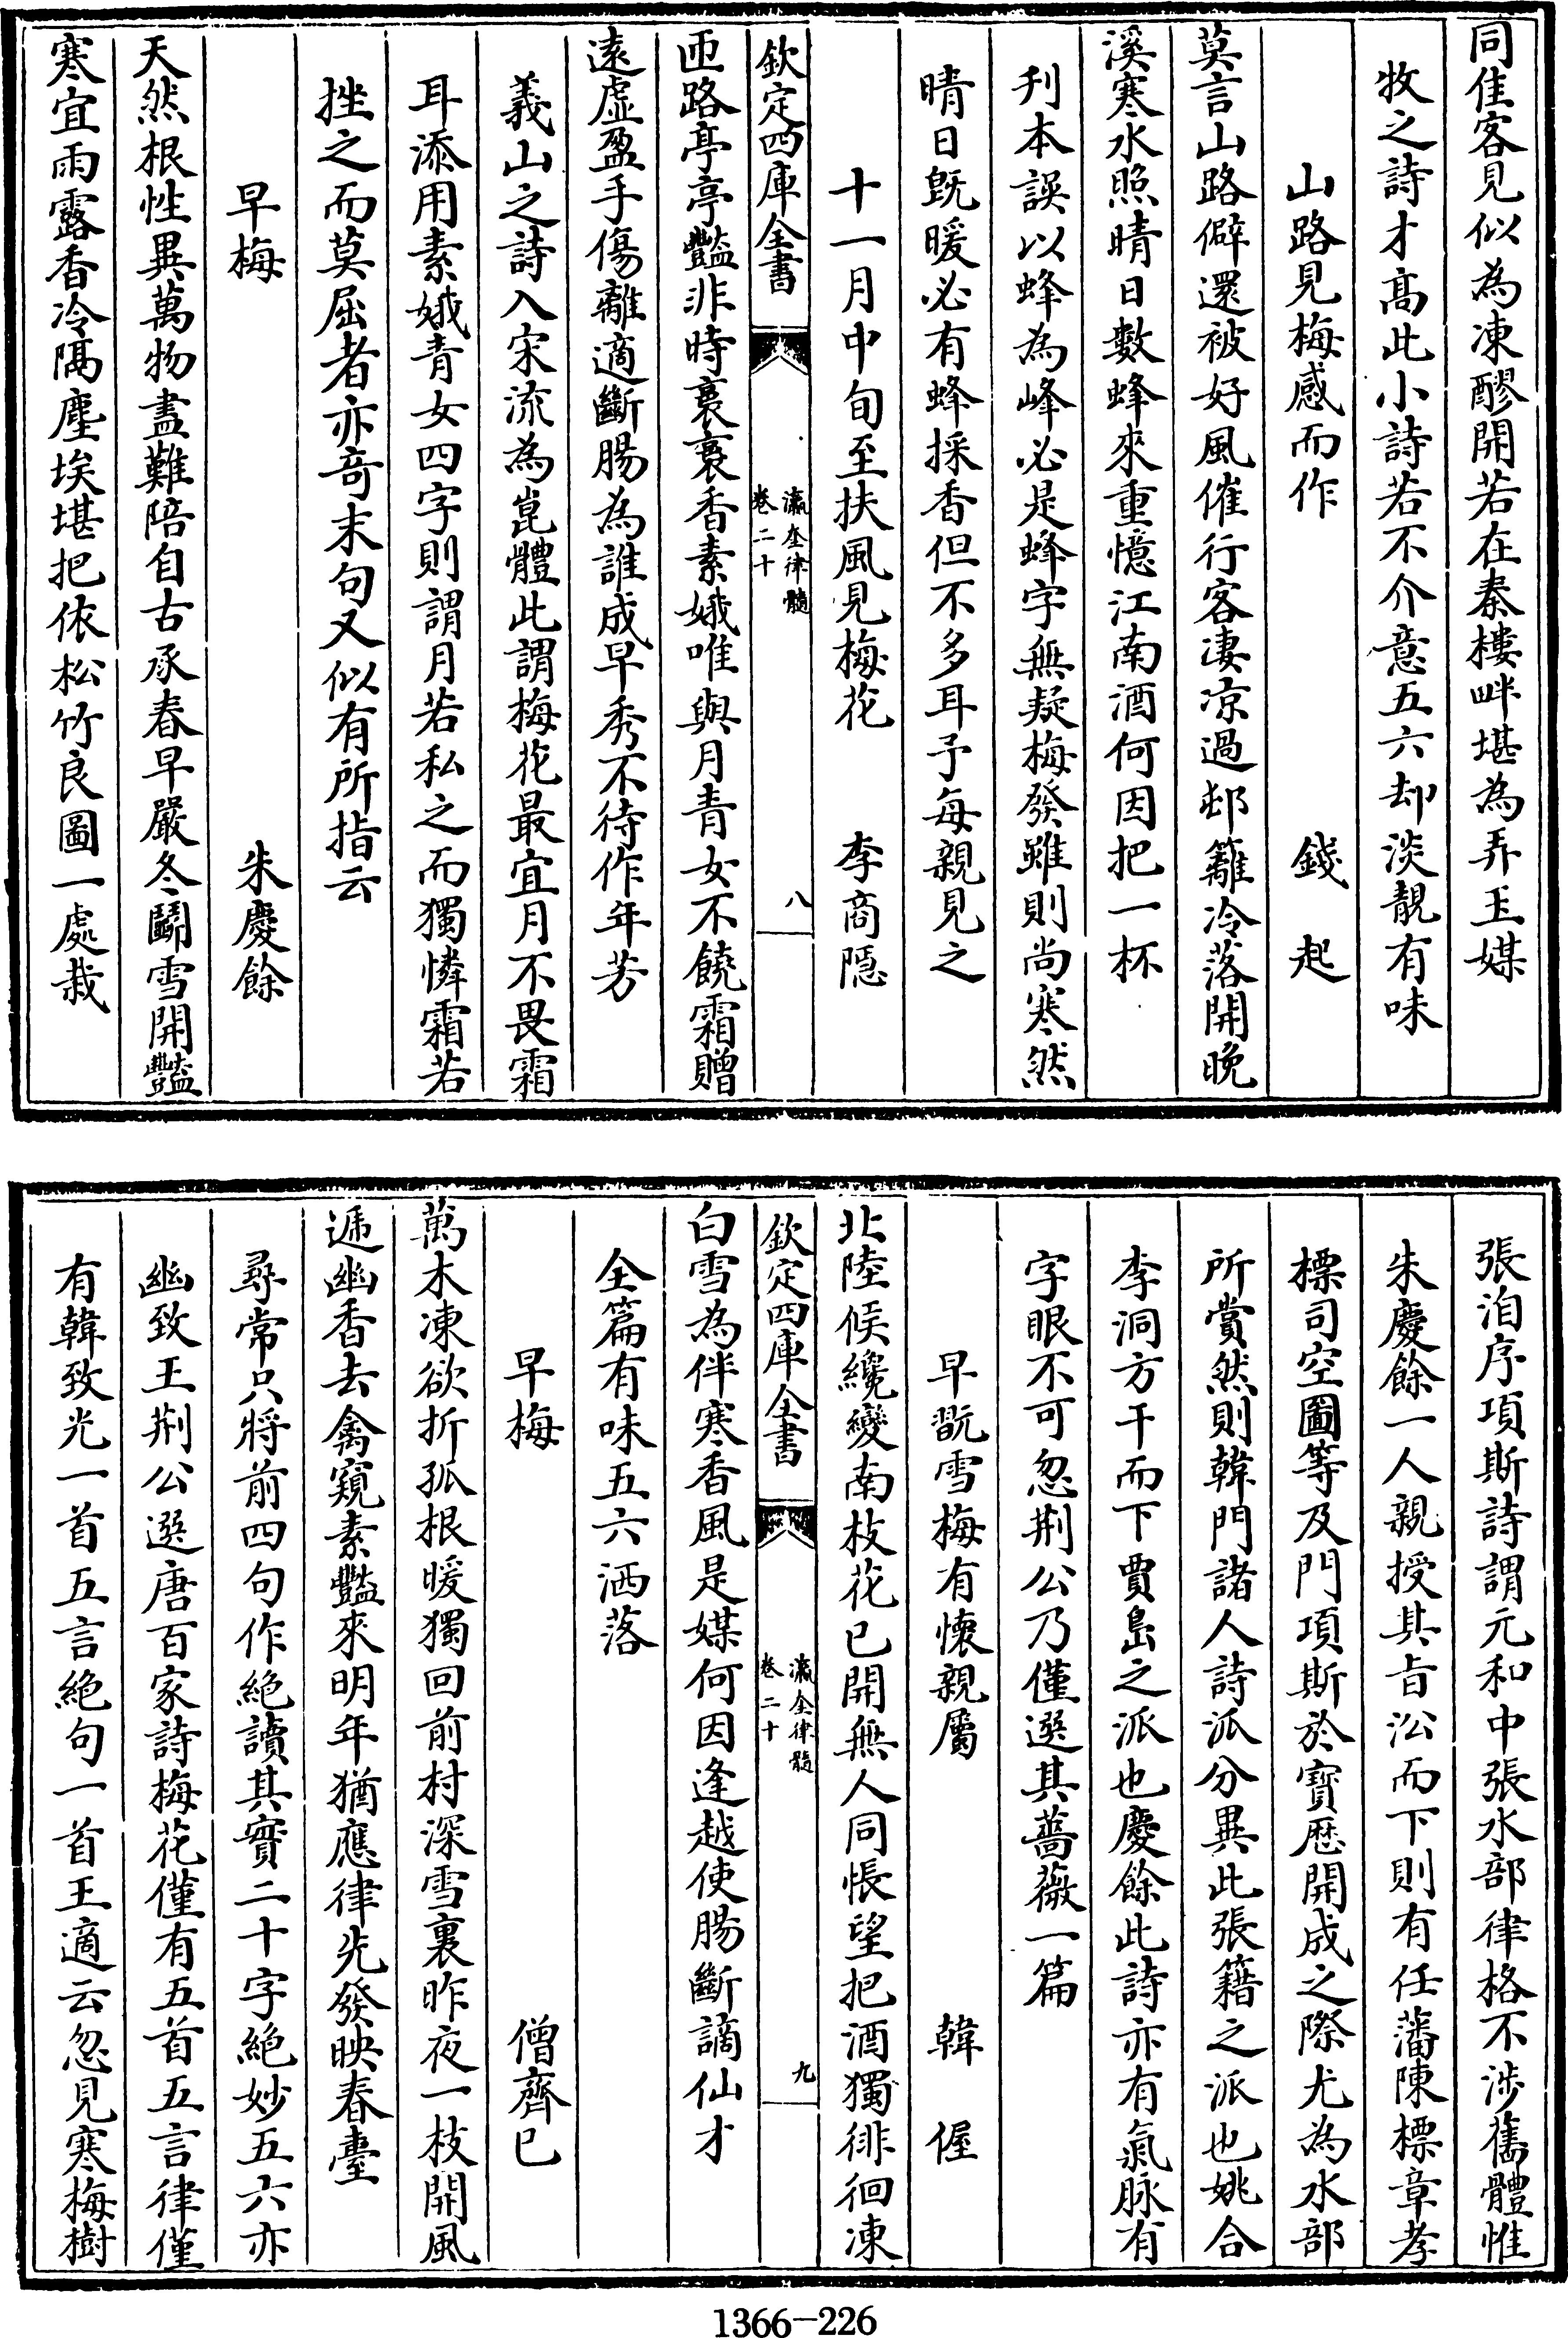 同佳客見似為凍醪開若在秦樓畔堪為弄玉媒
牧之詩才高此小詩若不介意五六却淡靚有味
山路見梅感而作　錢起
莫言山路僻還被好風催行客凄凉過邨籬冷落開晚
溪寒水照晴日數蜂來重憶江南酒何因把一杯
刋本誤以蜂為峰必是蜂字無疑梅發雖則尚寒然
晴日旣暖必有蜂採香但不多耳予每親見之
十一月中旬至扶風見梅花　李商隱
欽定四庫全書　瀛奎律髓　卷二十　八
匝路亭亭豔非時裛裛香素娥唯與月青女不饒霜贈
遠虛盈手傷離適斷腸為誰成早秀不待作年芳
義山之詩入宋流為崑體此謂梅花最宜月不畏霜
耳添用素娥青女四字則謂月若私之而獨憐霜若
挫之而莫屈者亦竒末句又似有所指云
早梅　朱慶餘
天然根性異萬物盡難陪自古承春早嚴冬鬭雪開豔
寒宜雨露香冷隔塵埃堪把依松竹良圖一處栽
張洎序項斯詩謂元和中張水部律格不涉舊體惟
朱慶餘一人親授其旨沿而下則有任藩陳標章孝
標司空圖等及門項斯於寳厯開成之際尤為水部
所賞然則韓門諸人詩派分異此張籍之派也姚合
李洞方干而下賈島之派也慶餘此詩亦有氣脉有
字眼不可忽荆公乃僅選其薔薇一篇
早翫雪梅有懷親屬　韓偓
北陸候纔變南枝花已開無人同悵望把酒獨徘徊凍
欽定四庫全書　瀛奎律髓　卷二十　九
白雪為伴寒香風是媒何因逢越使腸斷謫仙才
全篇有味五六洒落
早梅　僧齊己
萬木凍欲折孤根暖獨回前村深雪裏昨夜一枝開風
遞幽香去禽窺素豔來明年猶應律先發映春臺
尋常只將前四句作絶讀其實二十字絶妙五六亦
幽致王荆公選唐百家詩梅花僅有五首五言律僅
有韓致光一首五言絶句一首王適云忽見寒梅樹
1366-226